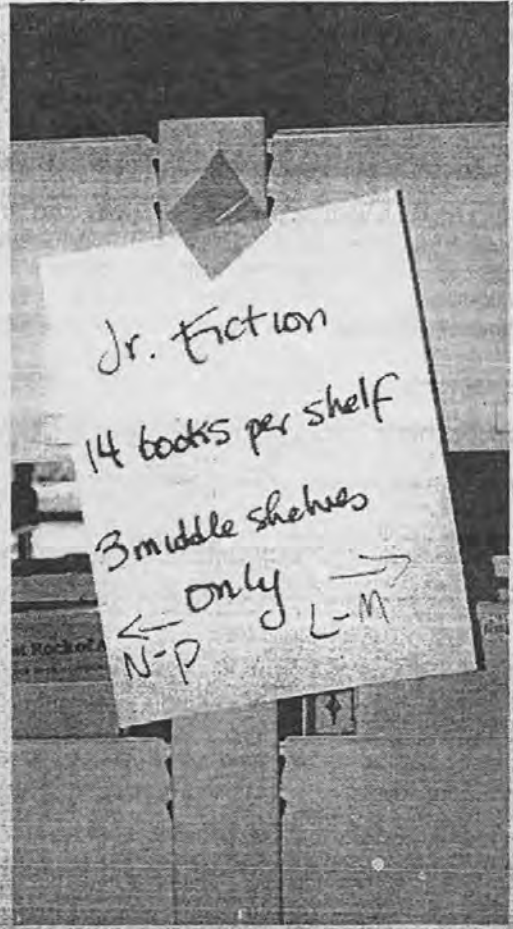 Jr. Fiction
14 books per shelf
3 middle shelves
only
← →
N-P L-M
Rock of